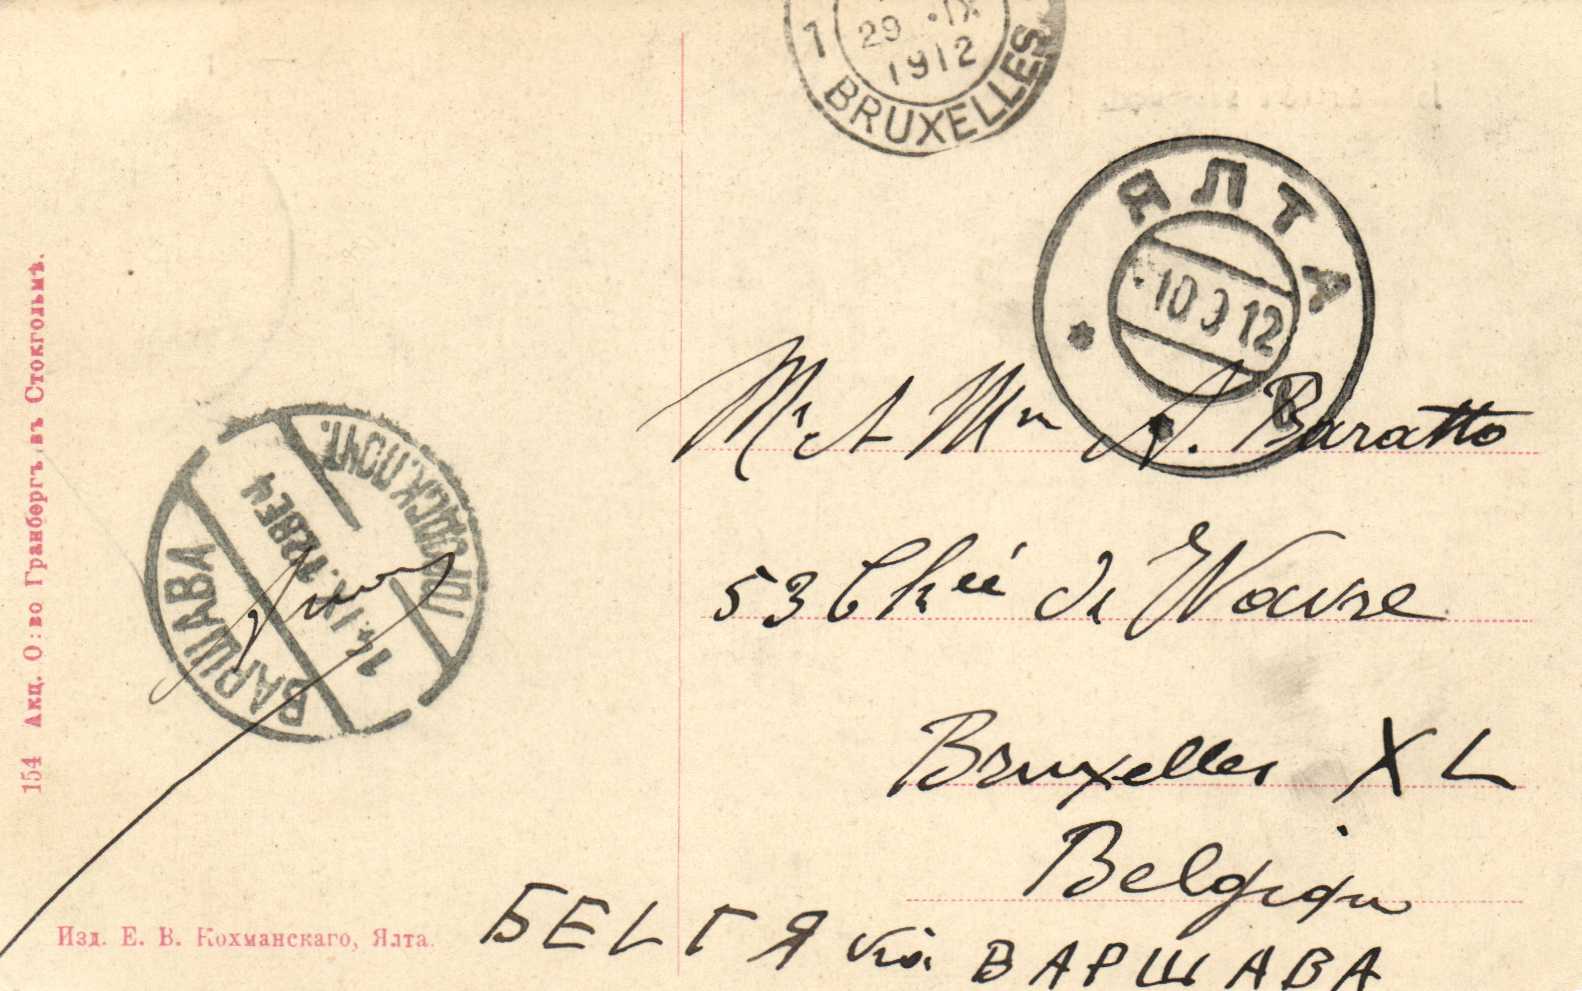 1 29 · IX 1912
BRUXELLES
ЯЛТА
·10 9 12
Mr et Mme A. Baratto
53 Chée de Wavre
Bruxelles XL
Belgique
БЕLГЯ via ВАРШАВА
ВАРШАВА
14.IX.12 8ВЕЧ
ГОРОДСК.ПОЧТ.
154 Акц. О:во Гранбергъ, въ Стокгольмѣ.
Изд. Е. В. Кохманскаго, Ялта.